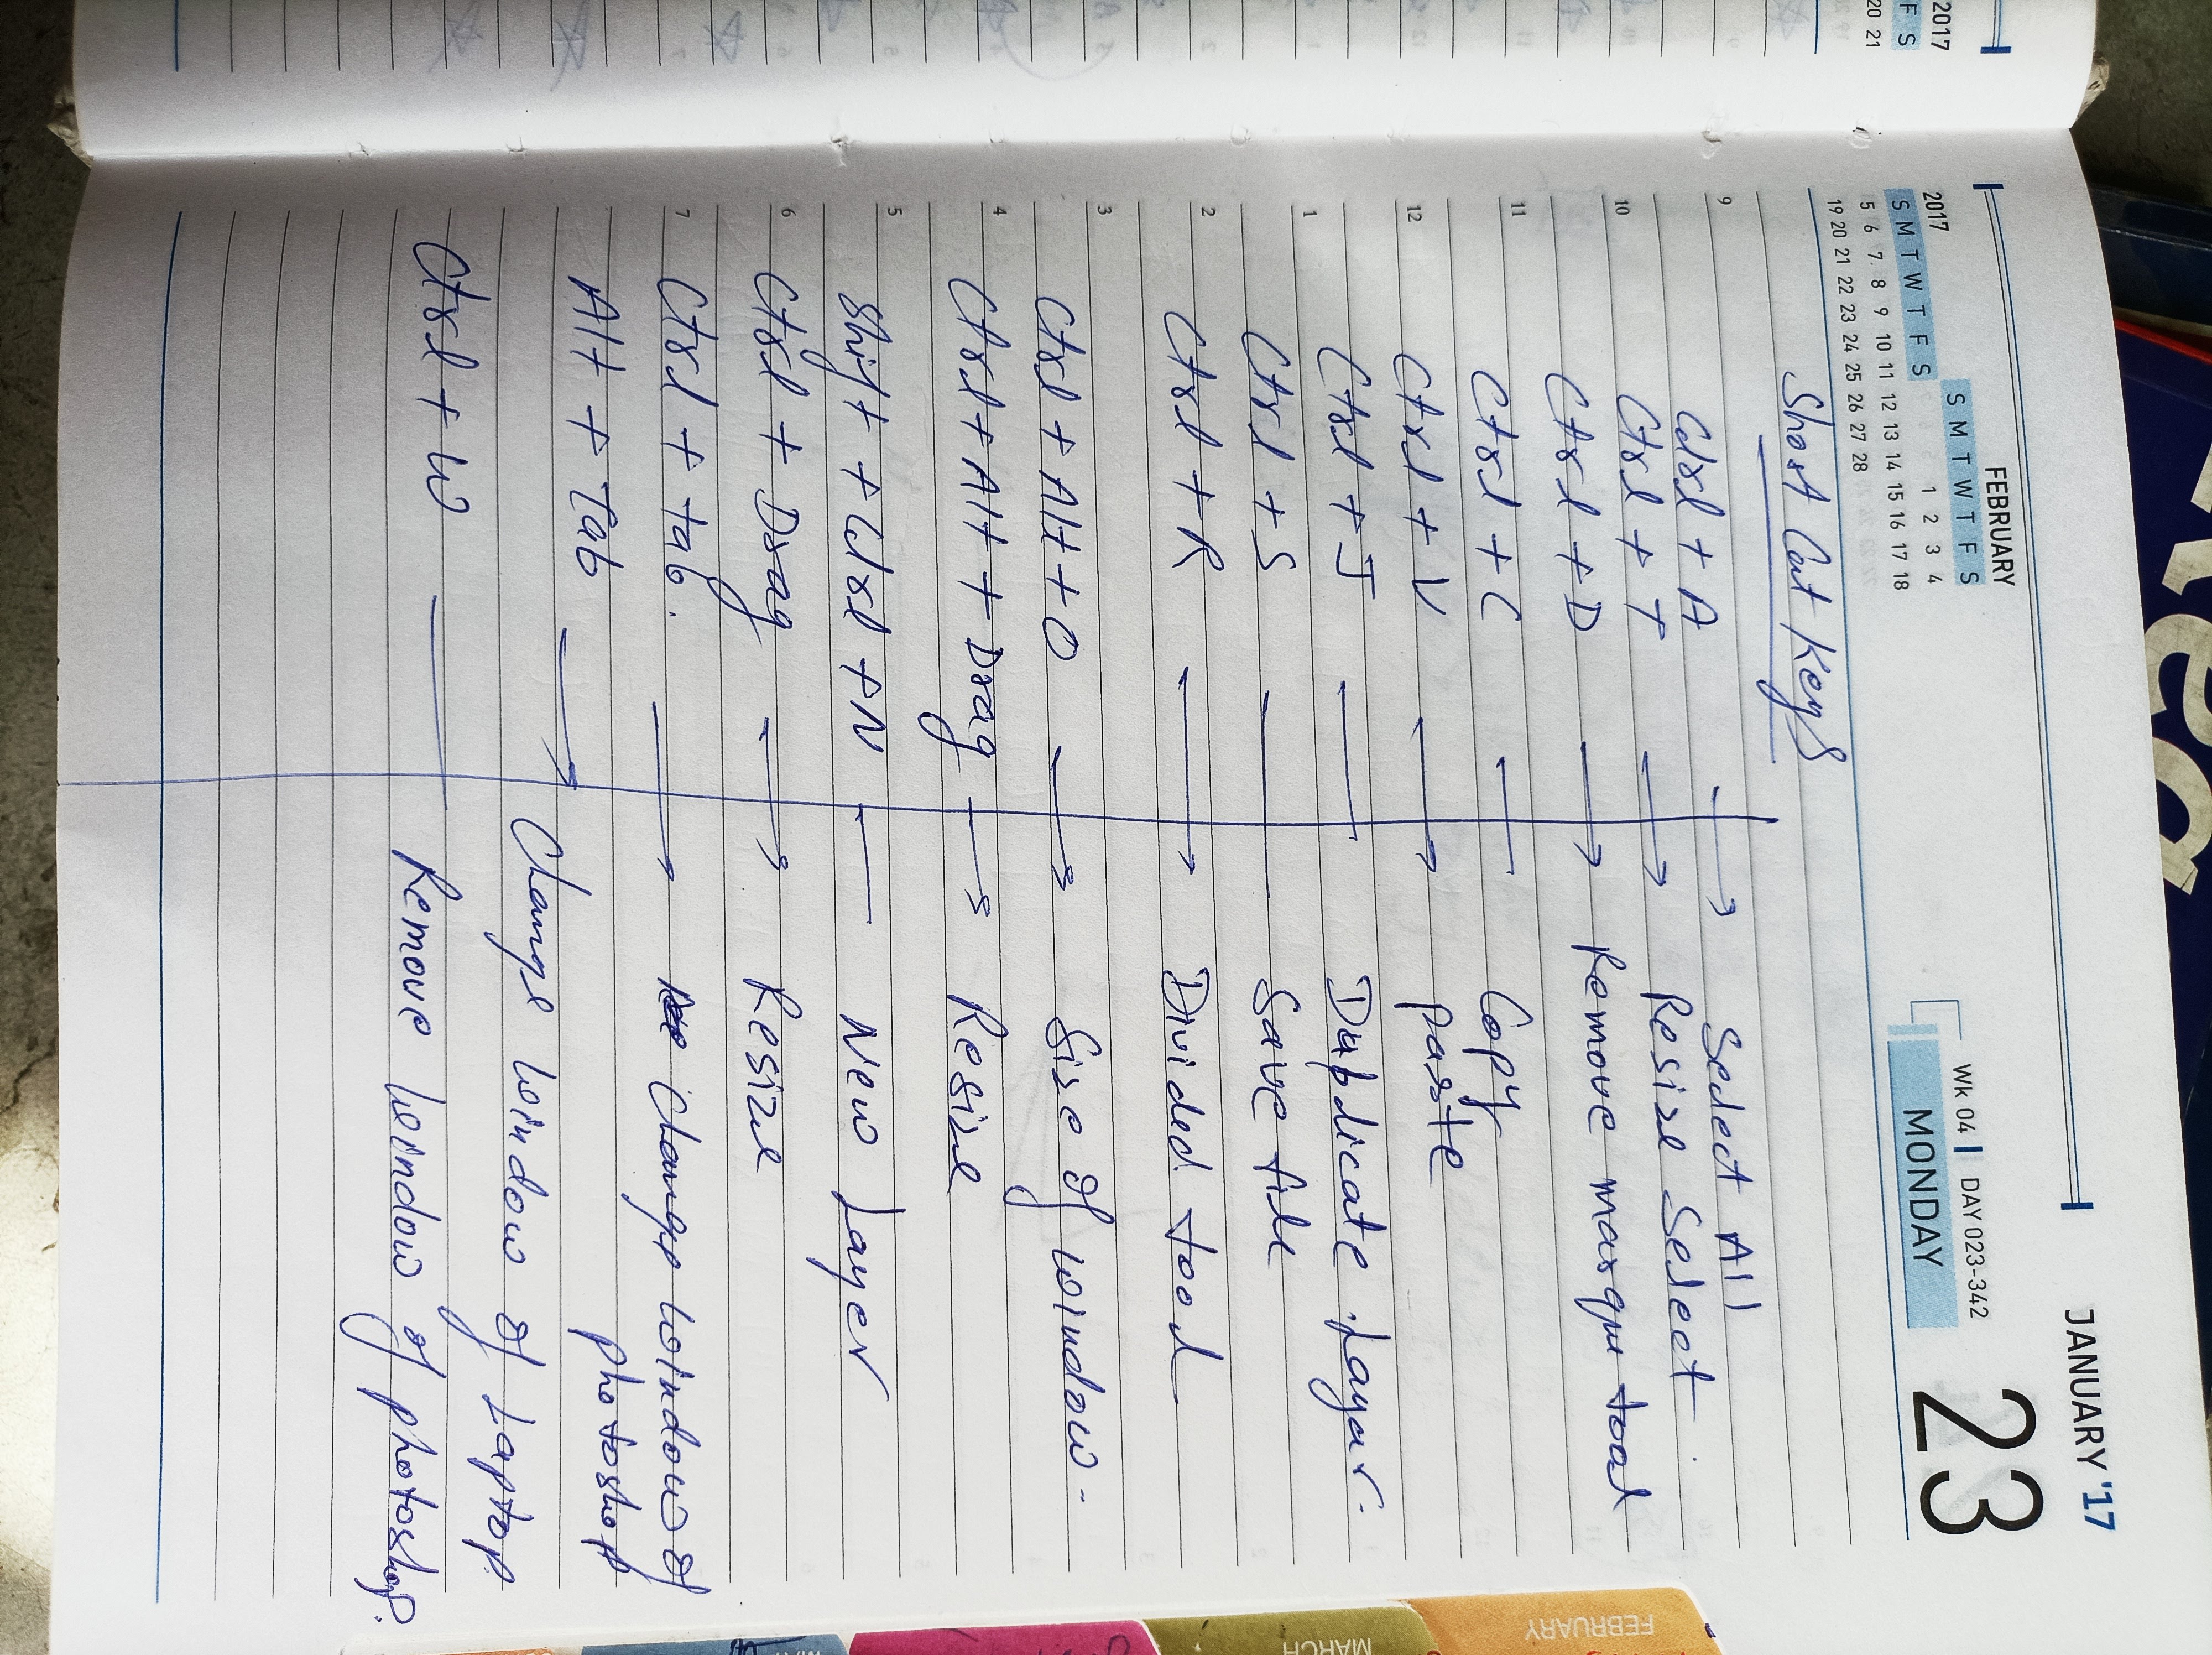 2017
F S
20 21
JANUARY '17
FEBRUARY
2017 S M T W T F S S M T W T F S
1 2 3 4
5 6 7 8 9 10 11 12 13 14 15 16 17 18
19 20 21 22 23 24 25 26 27 28
Wk 04 | DAY 023-342
MONDAY
23
Short Cut Keys
9
Ctrl + A → Select All
Ctrl + T → Resize Select
10
Ctrl + D → Remove marque tool
11
Ctrl + C — Copy
12
Ctrl + V → paste
Ctrl + J — Duplicate Layer.
1
Ctrl + S — Save file
2
Ctrl + R → Divided tool
3
Ctrl + Alt + O → Size of window -
4
Ctrl + Alt + Drag → Resize
5
Shift + Ctrl + N — New Layer
6
Ctrl + Drag → Resize
7
Ctrl + tab. → Change window of
photoshop
Alt + Tab → Change window of Laptop.
Ctrl + W — Remove window of photoshop.
FEBRUARY
MARCH